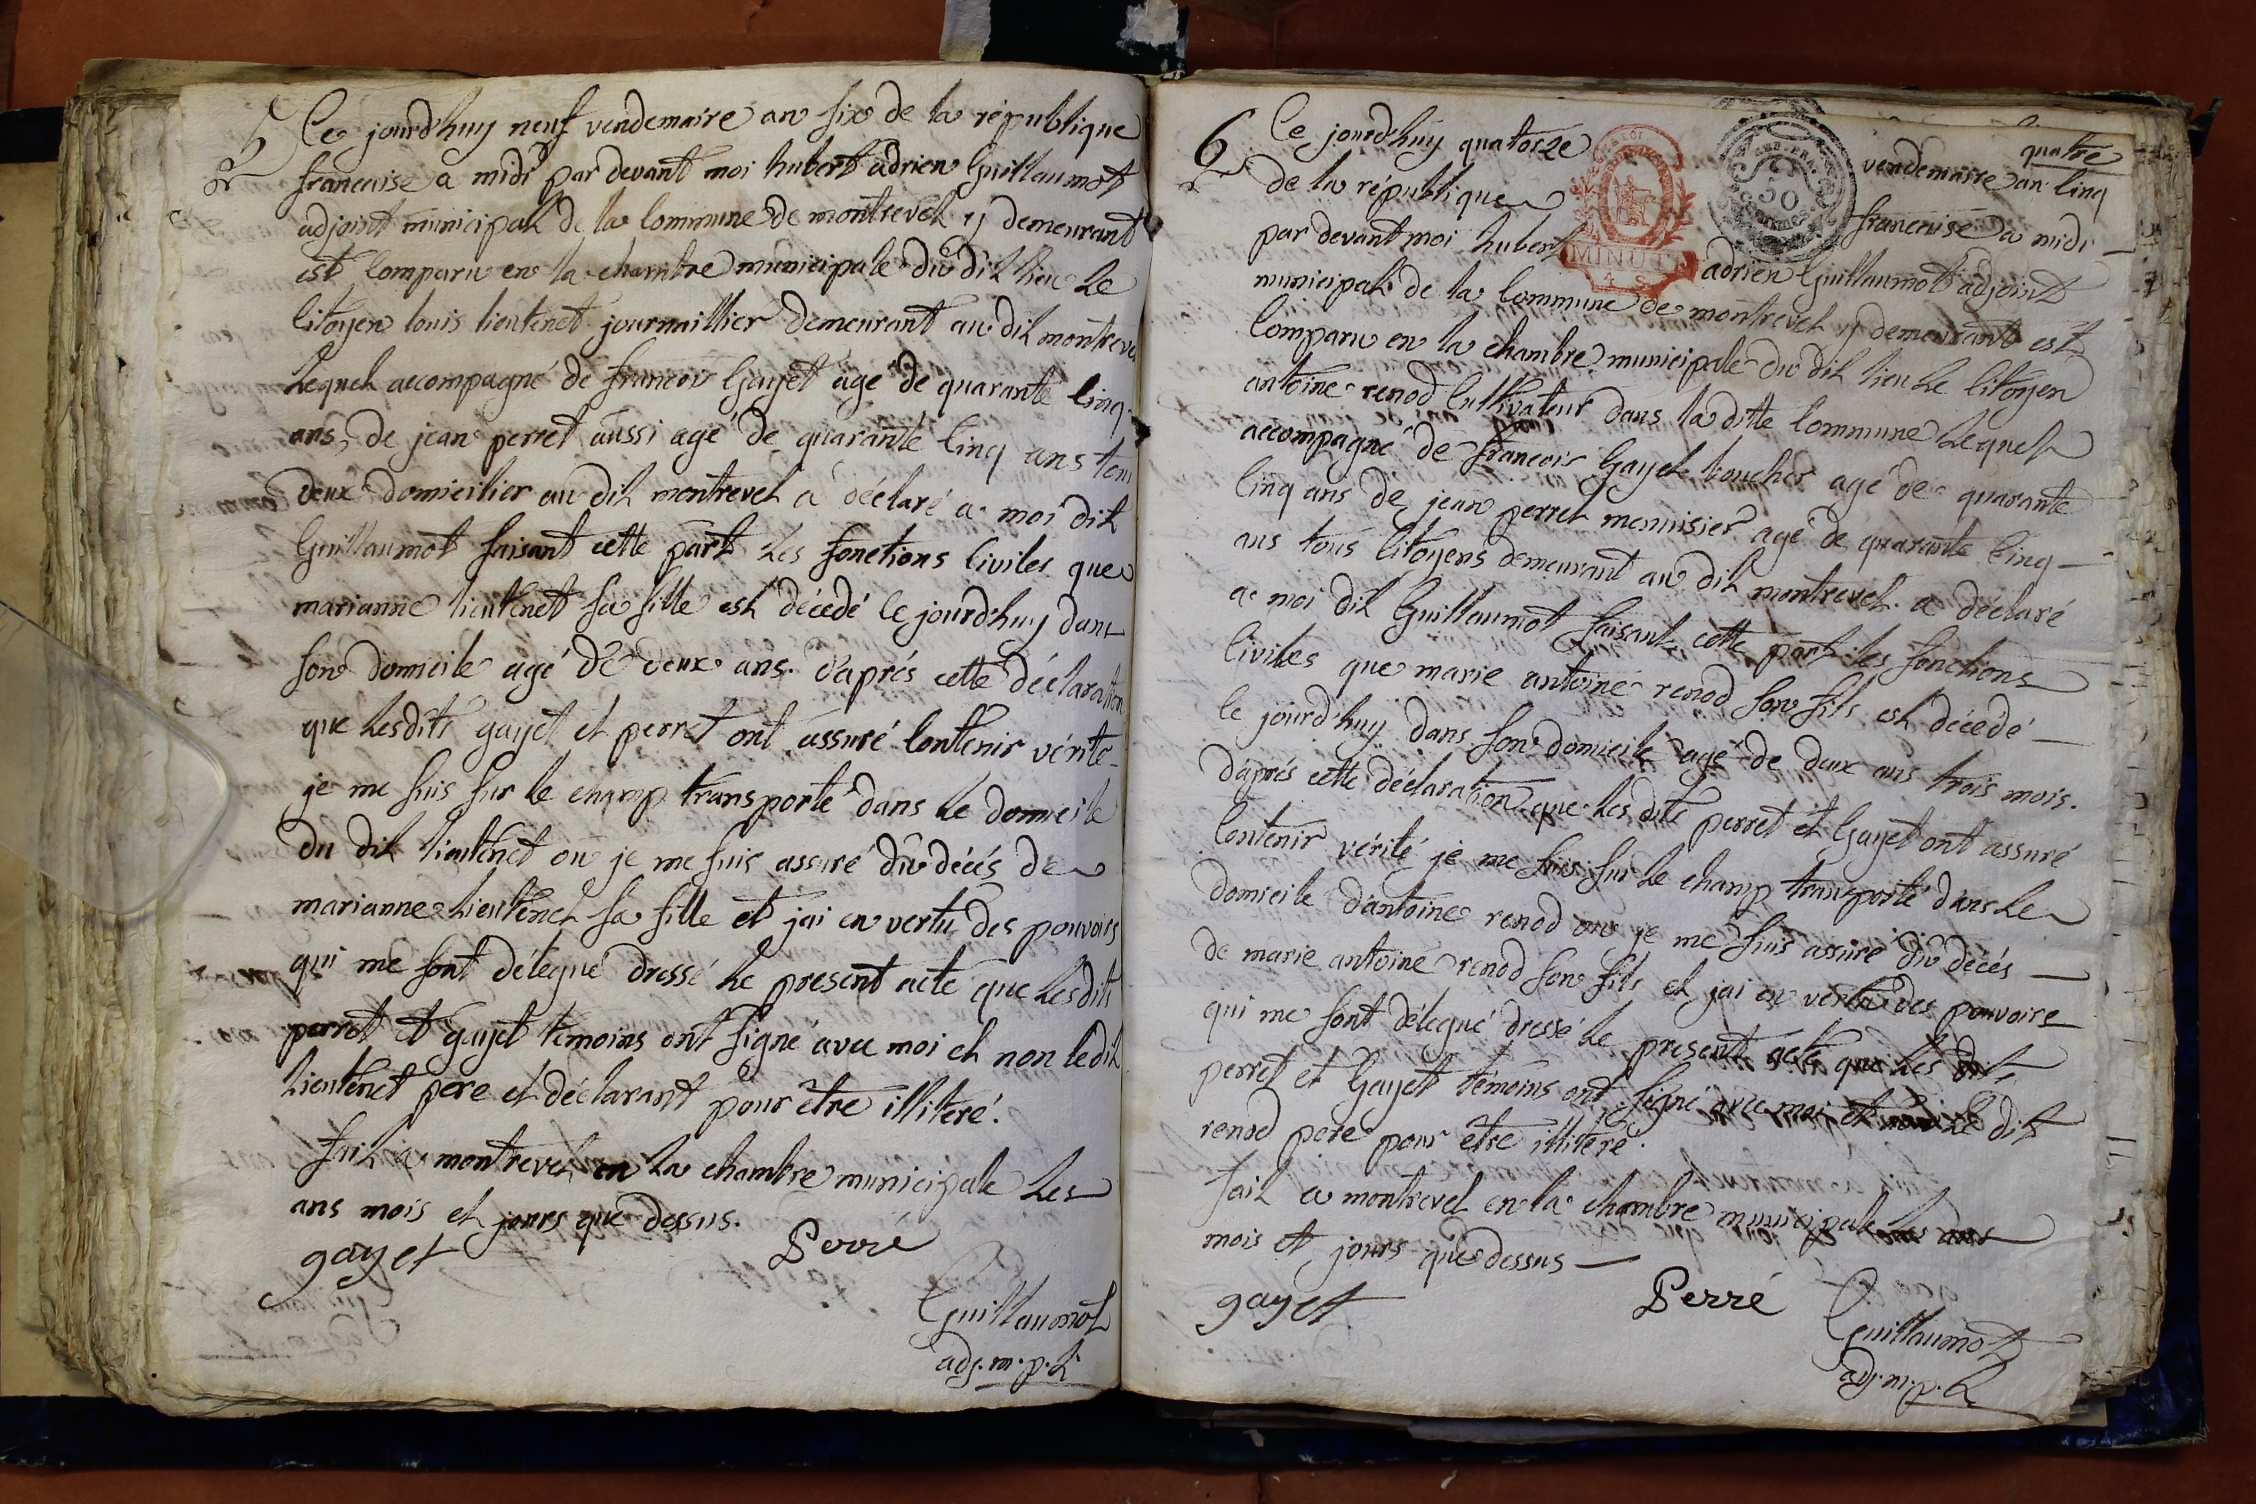 5
Ce jourd'huy neuf vendemaire an six de la république
francaise a midi par devant moi hubert adrien Guillaumot
adjoint municipal de la Commune de montrevel y demeurant
est Comparu en la chambre municipale du dit lieu le
Citoyen louis lieutenet journaillier demeurant au dit montrevel
Lequel accompagné de francois Gayet age de quarante cinq
ans, de jean perret aussi agé de quarante Cinq ans tous
deux domicilier au dit montrevel a déclaré a moi dit
Guillaumot faisant cette part les fonctions Civiles que
marianne lieutenet sa fille est décedé ce jourd'huy dans
son domicile agé de deux ans. d'aprés cette déclaration
que lesdits gayet et perret ont assuré Contenir vérité
je me suis sur le champ transporté dans le domicile
du dit lieutenet ou je me suis assuré du décés de
marianne lieutenet sa fille et jai en vertu des pouvoirs
qui me sont délegué dressé le present acte que lesdits
perret et gayet témoins ont signé avec moi et non ledit
lieutenet pere et déclarant pour être illiteré.
fait a montrevel en la chambre municipale les
ans mois et jours que dessus.
gayet
Perré
Guillaumot
adj. m. p. l
quatre
6
Ce jourd'huy quatorze vendemaire an cinq
de la république francaise a midi
par devant moi hubert adrien Guillaumot adjoint
MINUTE
50
municipal de la Commune de montrevel y demeurant est
Comparu en la chambre municipale du dit lieu le Citoyen
antoine renod Cultivateur dans la ditte Commune Lequel
accompagné de francois Gayet boucher agé de quarante
Cinq ans de jean perret menuisier agé de quarante Cinq
ans tous Citoyens demeurant au dit montrevel a déclaré
a moi dit Guillaumot faisant cette part les fonctions
Civiles que marie antoine renod son fils est décedé
ce jourd'huy dans son domicile agé de deux ans trois mois.
d'aprés cette déclaration que les dits perret et Gayet ont assuré
Contenir vérité je me suis sur le champ transporté dans le
domicile d'antoine renod ou je me suis assuré du décés
de marie antoine renod son fils et jai en vertu des pouvoirs
qui me sont délegué dressé le present acte que les dits
perret et Gayet témoins ont signé avec moi et non le dit
renod pere pour être illiteré.
fait a montrevel en la chambre municipale les ans
mois et jours que dessus
gayet
Perré
Guillaumot
adj. m. p. l